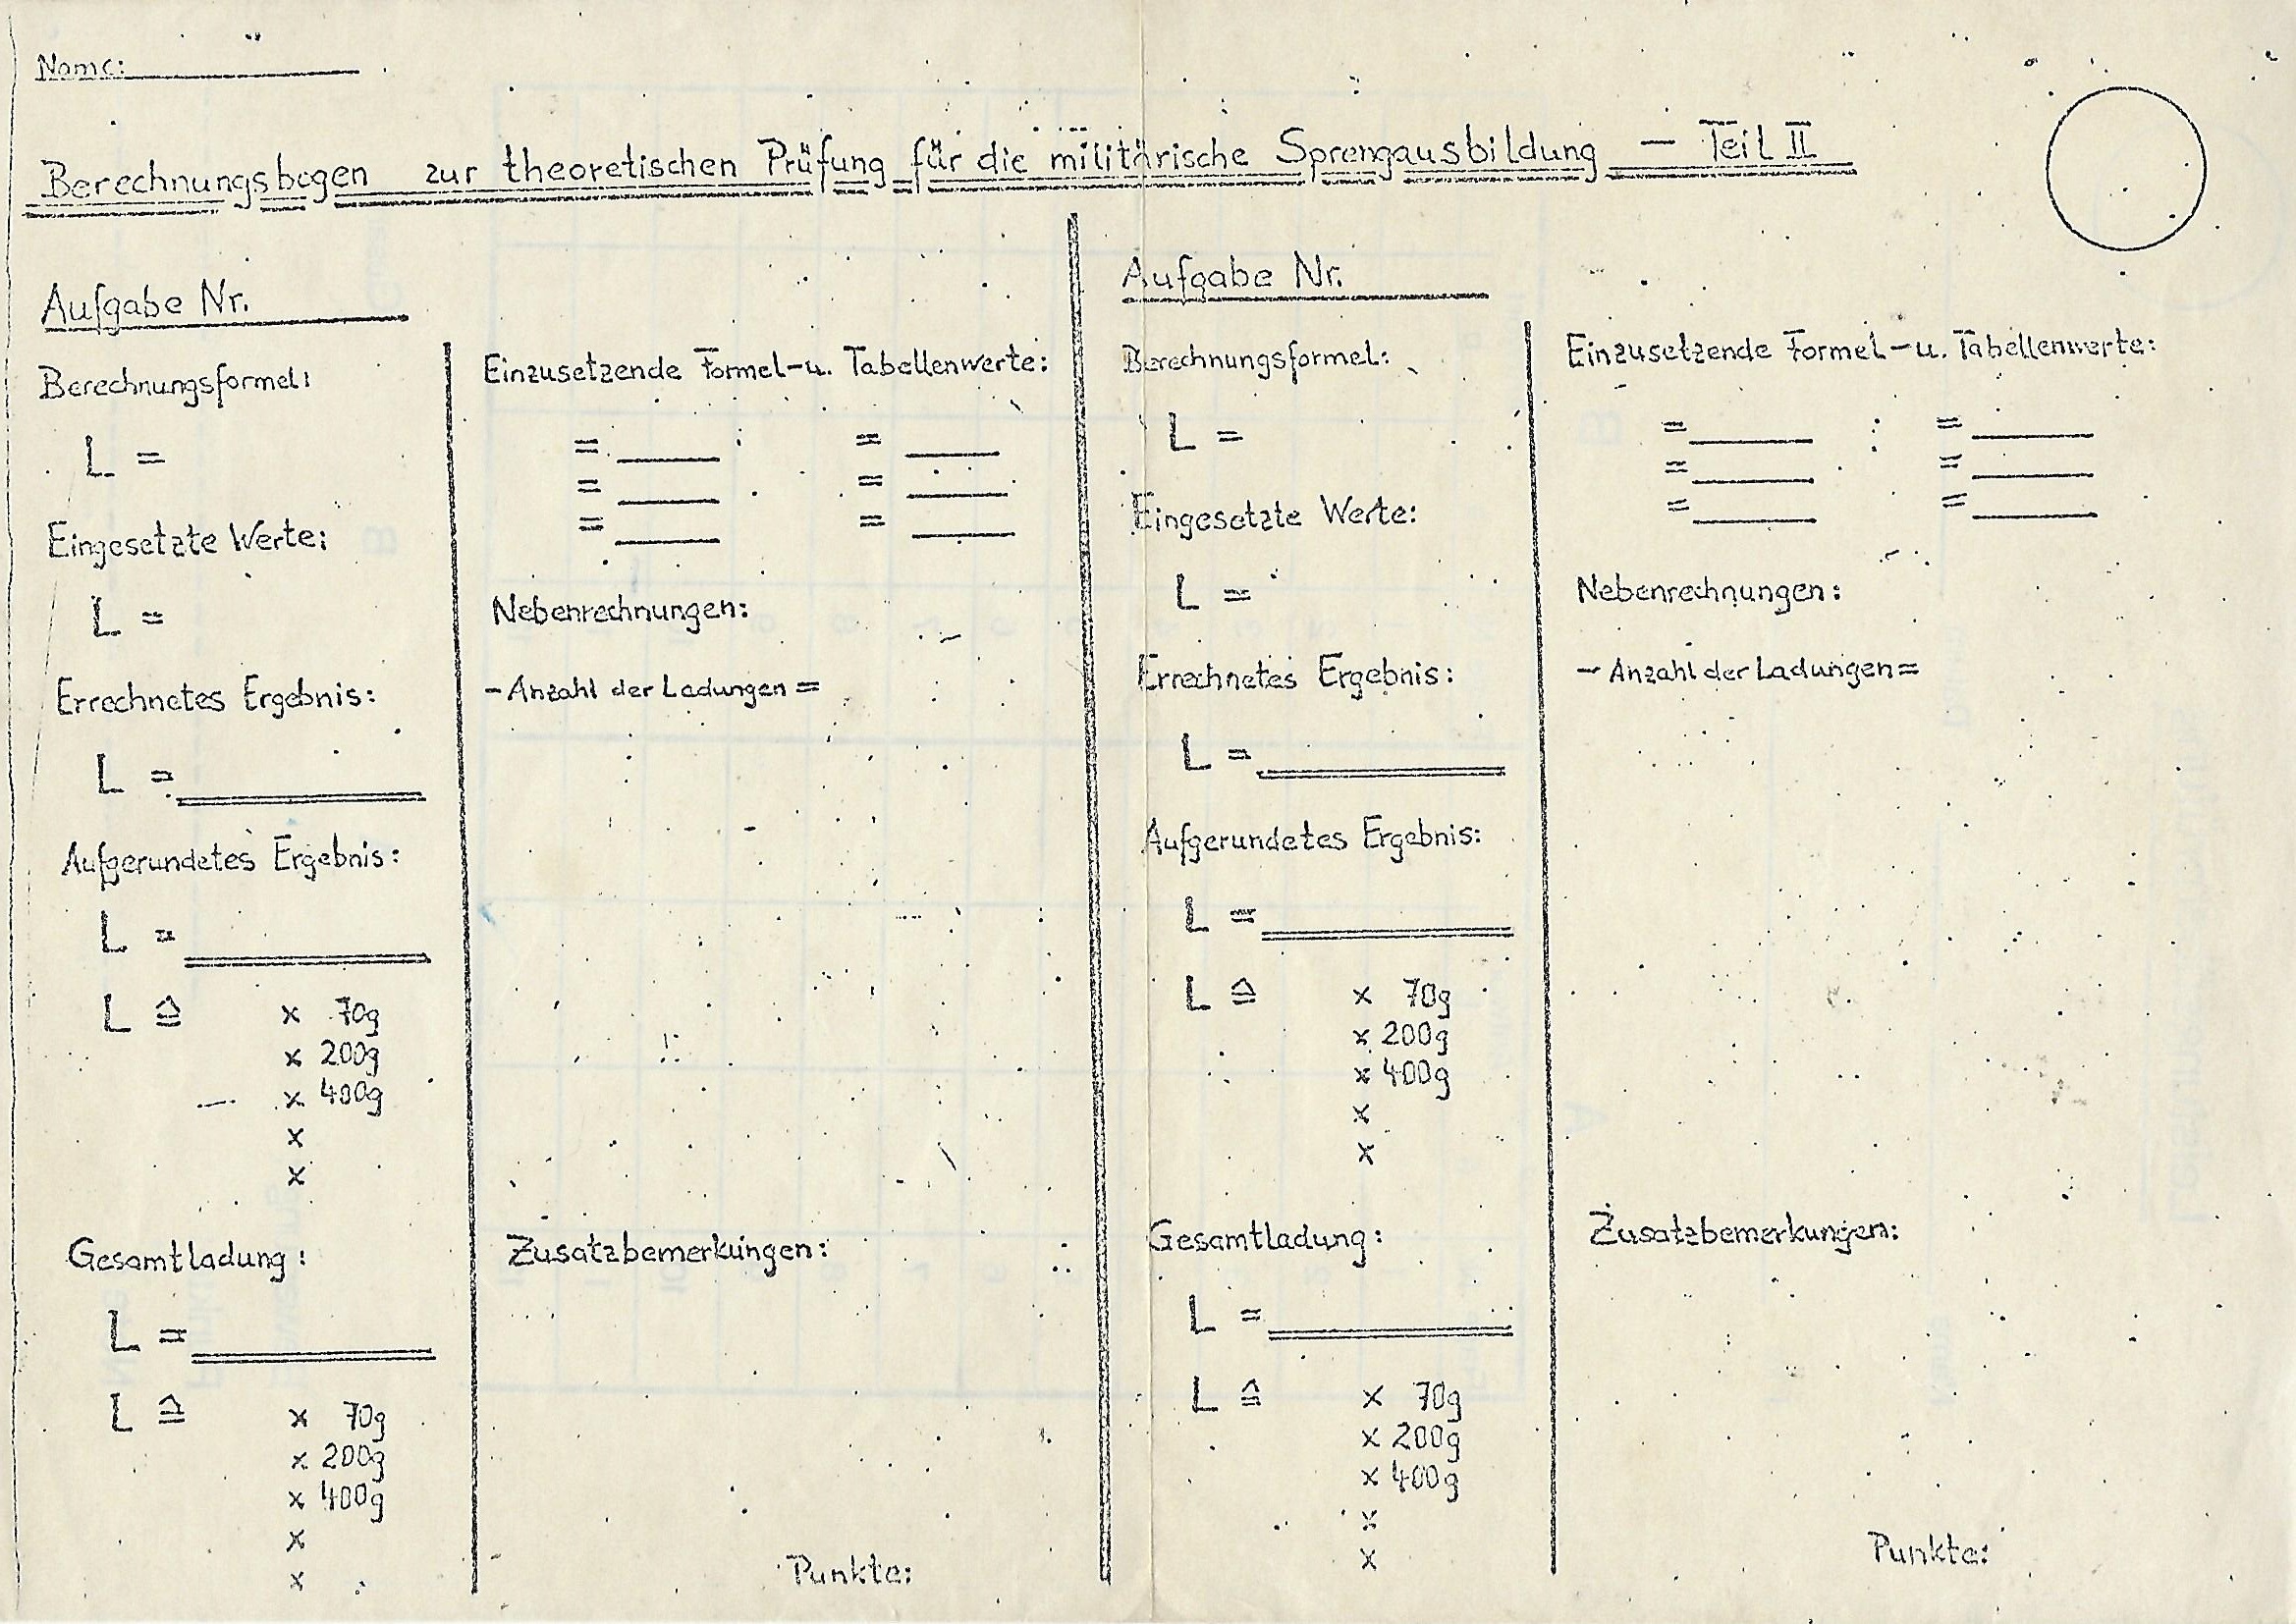 Name:
Berechnungsbogen zur theoretischen Prüfung für die militärische Sprengausbildung – Teil II
Aufgabe Nr.
Berechnungsformel:
L =
Eingesetzte Werte:
L =
Errechnetes Ergebnis:
L =
Aufgerundetes Ergebnis:
L =
L ≙ x 70g
x 200g
x 400g
x
x
Gesamtladung:
L =
L ≙ x 70g
x 200g
x 400g
x
x
Einzusetzende Formel-u. Tabellenwerte:
= =
= =
= =
Nebenrechnungen:
- Anzahl der Ladungen =
Zusatzbemerkungen:
Punkte:
Aufgabe Nr.
Berechnungsformel:
L =
Eingesetzte Werte:
L =
Errechnetes Ergebnis:
L =
Aufgerundetes Ergebnis:
L =
L ≙ x 70g
x 200g
x 400g
x
x
Gesamtladung:
L =
L ≙ x 70g
x 200g
x 400g
x
x
Einzusetzende Formel-u. Tabellenwerte:
= =
= =
= =
Nebenrechnungen:
- Anzahl der Ladungen =
Zusatzbemerkungen:
Punkte: